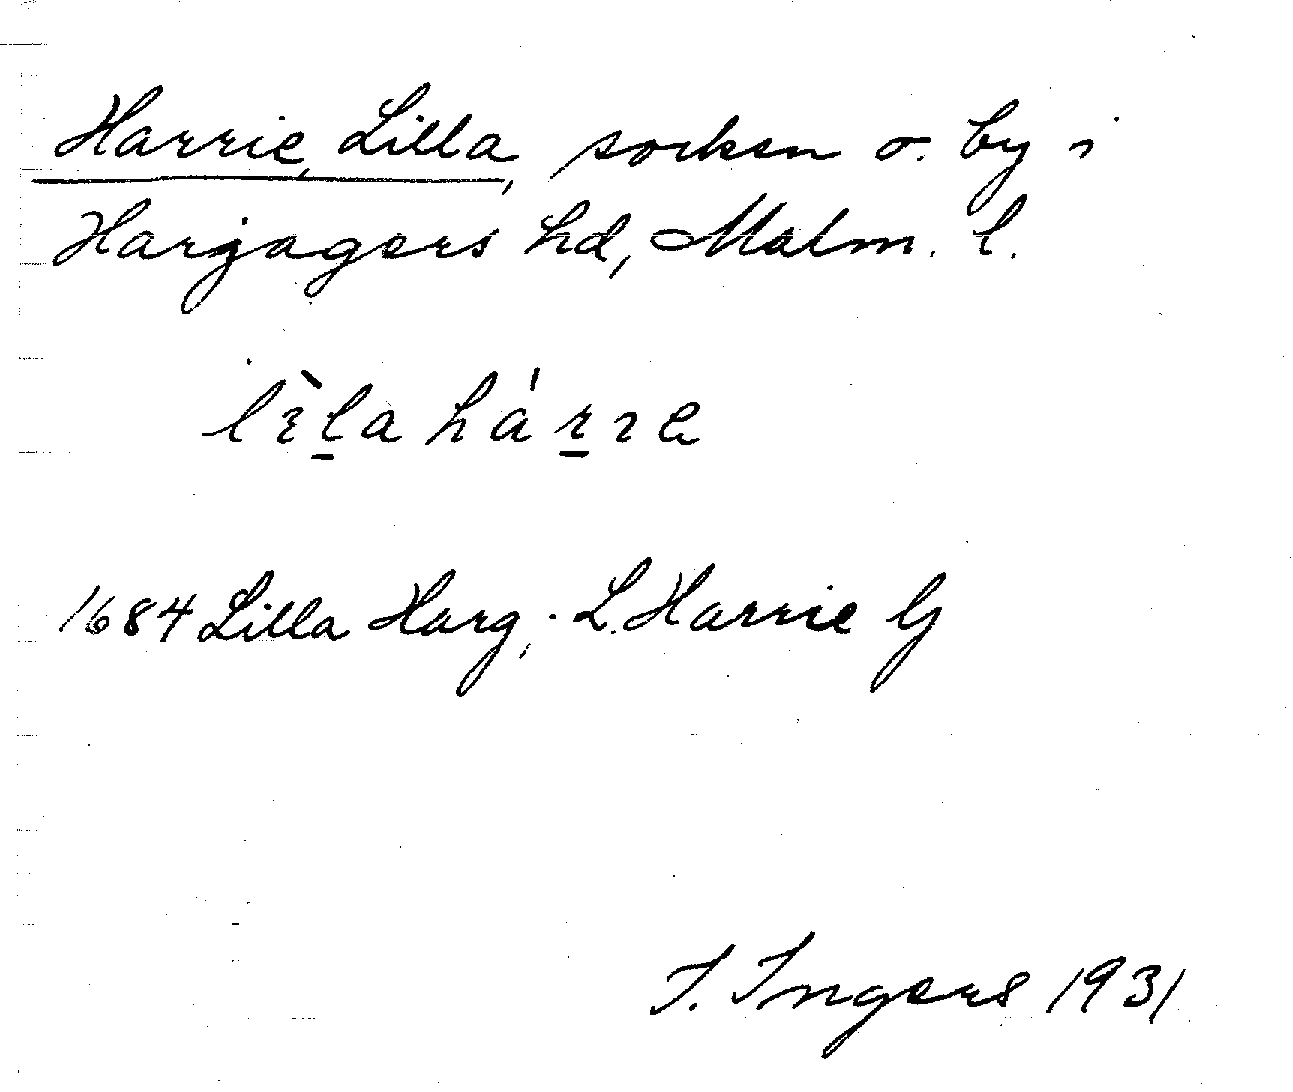 Harrie, Lilla, socken o. by i
Harjagers hd, Malm. l.
lìla hárre
1684 Lilla Harg, L. Harrie G
I. Ingers 1931